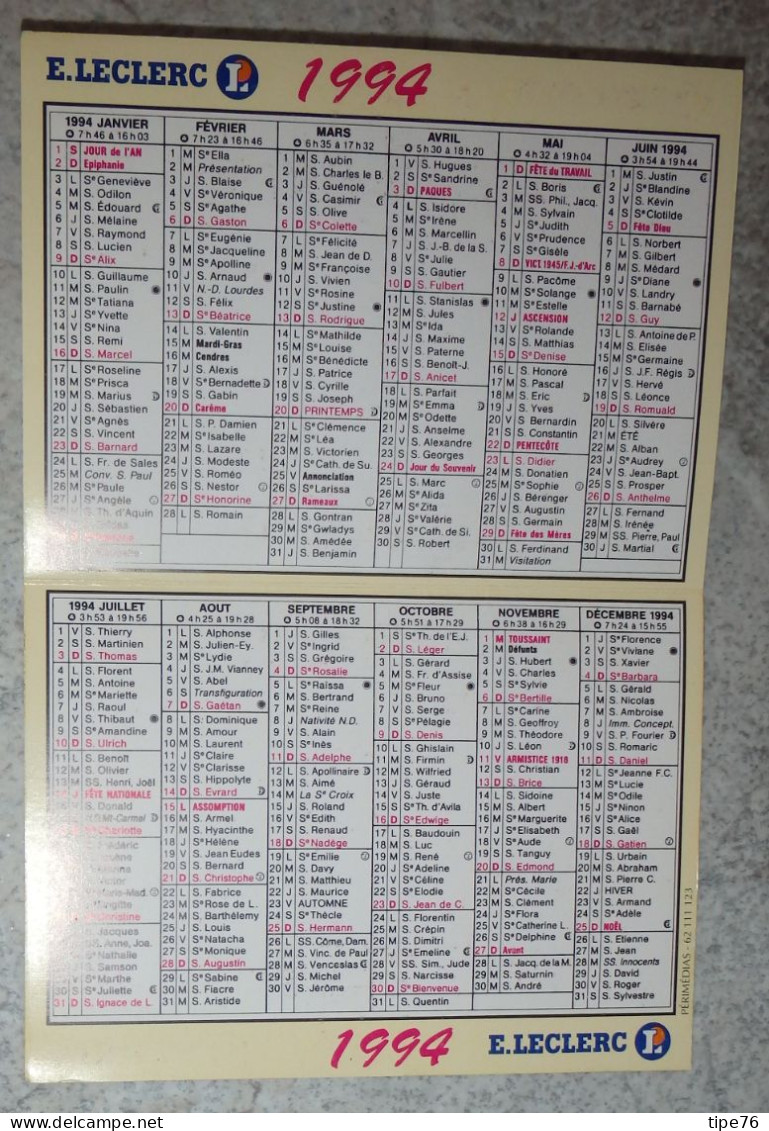 E.LECLERC L 1994
1994 JANVIER
7 h 46 à 16 h 03
1 S JOUR de l'AN
2 D Epiphanie
3 L Sᵉ Geneviève
4 M S. Odilon
5 M S. Édouard
6 J S. Mélaine
7 V S. Raymond
8 S S. Lucien
9 D Sᵉ Alix
10 L S. Guillaume
11 M S. Paulin
12 M Sᵉ Tatiana
13 J Sᵉ Yvette
14 V Sᵉ Nina
15 S S. Remi
16 D S. Marcel
17 L Sᵉ Roseline
18 M Sᵉ Prisca
19 M S. Marius
20 J S. Sébastien
21 V Sᵉ Agnès
22 S S. Vincent
23 D S. Barnard
24 L S. Fr. de Sales
25 M Conv. S. Paul
26 M Sᵉ Paule
27 J Sᵉ Angèle
S. Th. d'Aquin
FÉVRIER
7 h 23 à 16 h 46
1 M Sᵉ Ella
2 M Présentation
3 J S. Blaise
4 V Sᵉ Véronique
5 S Sᵉ Agathe
6 D S. Gaston
7 L Sᵉ Eugénie
8 M Sᵉ Jacqueline
9 M Sᵉ Apolline
10 J S. Arnaud
11 V N.-D. Lourdes
12 S S. Félix
13 D Sᵉ Béatrice
14 L S. Valentin
15 M Mardi-Gras
16 M Cendres
17 J S. Alexis
18 V Sᵉ Bernadette
19 S S. Gabin
20 D Carême
21 L S. P. Damien
22 M Sᵉ Isabelle
23 M S. Lazare
24 J S. Modeste
25 V S. Roméo
26 S S. Nestor
27 D Sᵉ Honorine
28 L S. Romain
MARS
6 h 35 à 17 h 32
1 M S. Aubin
2 M S. Charles le B.
3 J S. Guénolé
4 V S. Casimir
5 S S. Olive
6 D Sᵉ Colette
7 L Sᵉ Félicité
8 M S. Jean de D.
9 M Sᵉ Françoise
10 J S. Vivien
11 V Sᵉ Rosine
12 S Sᵉ Justine
13 D S. Rodrigue
14 L Sᵉ Mathilde
15 M Sᵉ Louise
16 M Sᵉ Bénédicte
17 J S. Patrice
18 V S. Cyrille
19 S S. Joseph
20 D PRINTEMPS
21 L Sᵉ Clémence
22 M Sᵉ Léa
23 M S. Victorien
24 J Sᵉ Cath. de Su.
25 V Annonciation
26 S Sᵉ Larissa
27 D Rameaux
28 L S. Gontran
29 M Sᵉ Gwladys
30 M S. Amédée
31 J S. Benjamin
AVRIL
5 h 30 à 18 h 20
1 V S. Hugues
2 S Sᵉ Sandrine
3 D PAQUES
4 L S. Isidore
5 M Sᵉ Irène
6 M S. Marcellin
7 J S. J.-B. de la S.
8 V Sᵉ Julie
9 S S. Gautier
10 D S. Fulbert
11 L S. Stanislas
12 M S. Jules
13 M Sᵉ Ida
14 J S. Maxime
15 V S. Paterne
16 S S. Benoît-J.
17 D S. Anicet
18 L S. Parfait
19 M Sᵉ Emma
20 M Sᵉ Odette
21 J S. Anselme
22 V S. Alexandre
23 S S. Georges
24 D Jour du Souvenir
25 L S. Marc
26 M Sᵉ Alida
27 M Sᵉ Zita
28 J Sᵉ Valérie
29 V Sᵉ Cath. de Si.
30 S S. Robert
MAI
4 h 32 à 19 h 04
1 D FÊTE du TRAVAIL
2 L S. Boris
3 M SS. Phil., Jacq.
4 M S. Sylvain
5 J Sᵉ Judith
6 V Sᵉ Prudence
7 S Sᵉ Gisèle
8 D VICT. 1945/F.J.-d'Arc
9 L S. Pacôme
10 M Sᵉ Solange
11 M Sᵉ Estelle
12 J ASCENSION
13 V Sᵉ Rolande
14 S S. Matthias
15 D Sᵉ Denise
16 L S. Honoré
17 M S. Pascal
18 M S. Eric
19 J S. Yves
20 V S. Bernardin
21 S S. Constantin
22 D PENTECÔTE
23 L S. Didier
24 M S. Donatien
25 M Sᵉ Sophie
26 J S. Bérenger
27 V S. Augustin
28 S S. Germain
29 D Fête des Mères
30 L S. Ferdinand
31 M Visitation
JUIN 1994
3 h 54 à 19 h 44
1 M S. Justin
2 J Sᵉ Blandine
3 V S. Kévin
4 S Sᵉ Clotilde
5 D Fête Dieu
6 L S. Norbert
7 M S. Gilbert
8 M S. Médard
9 J Sᵉ Diane
10 V S. Landry
11 S S. Barnabé
12 D S. Guy
13 L S. Antoine de P.
14 M S. Elisée
15 M Sᵉ Germaine
16 J S. J.F. Régis
17 V S. Hervé
18 S S. Léonce
19 D S. Romuald
20 L S. Silvère
21 M ÉTÉ
22 M S. Alban
23 J Sᵉ Audrey
24 V S. Jean-Bapt.
25 S S. Prosper
26 D S. Anthelme
27 L S. Fernand
28 M S. Irénée
29 M SS. Pierre, Paul
30 J S. Martial
1994 JUILLET
3 h 53 à 19 h 56
1 V S. Thierry
2 S S. Martinien
3 D S. Thomas
4 L S. Florent
5 M S. Antoine
6 M Sᵉ Mariette
7 J S. Raoul
8 V S. Thibaut
9 S Sᵉ Amandine
10 D S. Ulrich
11 L S. Benoît
12 M S. Olivier
13 M SS. Henri, Joël
14 J FÊTE NATIONALE
S. Donald
N.D. Mt-Carmel
Sᵉ Charlotte
Jacques
Anne, Joa.
Nathalie
Samson
Sᵉ Marthe
30 S Sᵉ Juliette
31 D S. Ignace de L.
AOUT
4 h 25 à 19 h 28
1 L S. Alphonse
2 M S. Julien-Ey.
3 M Sᵉ Lydie
4 J S. J.M. Vianney
5 V S. Abel
6 S Transfiguration
7 D S. Gaétan
8 L S. Dominique
9 M S. Amour
10 M S. Laurent
11 J Sᵉ Claire
12 V Sᵉ Clarisse
13 S S. Hippolyte
14 D S. Evrard
15 L ASSOMPTION
16 M S. Armel
17 M S. Hyacinthe
18 J Sᵉ Hélène
19 V S. Jean Eudes
20 S S. Bernard
21 D S. Christophe
22 L S. Fabrice
23 M Sᵉ Rose de L.
24 M S. Barthélemy
25 J S. Louis
26 V Sᵉ Natacha
27 S Sᵉ Monique
28 D S. Augustin
29 L Sᵉ Sabine
30 M S. Fiacre
31 M S. Aristide
SEPTEMBRE
5 h 08 à 18 h 32
1 J S. Gilles
2 V Sᵉ Ingrid
3 S S. Grégoire
4 D Sᵉ Rosalie
5 L Sᵉ Raïssa
6 M S. Bertrand
7 M Sᵉ Reine
8 J Nativité N.D.
9 V S. Alain
10 S Sᵉ Inès
11 D S. Adelphe
12 L S. Apollinaire
13 M S. Aimé
14 M La Sᵉ Croix
15 J S. Roland
16 V Sᵉ Edith
17 S S. Renaud
18 D Sᵉ Nadège
19 L Sᵉ Emilie
20 M S. Davy
21 M S. Matthieu
22 J S. Maurice
23 V AUTOMNE
24 S Sᵉ Thècle
25 D S. Hermann
26 L SS. Côme, Dam.
27 M S. Vinc. de Paul
28 M S. Venceslas
29 J S. Michel
30 V S. Jérôme
OCTOBRE
5 h 51 à 17 h 29
1 S Sᵉ Th. de l'E.J.
2 D S. Léger
3 L S. Gérard
4 M S. Fr. d'Assise
5 M Sᵉ Fleur
6 J S. Bruno
7 V S. Serge
8 S Sᵉ Pélagie
9 D S. Denis
10 L S. Ghislain
11 M S. Firmin
12 M S. Wilfried
13 J S. Géraud
14 V S. Juste
15 S Sᵉ Th. d'Avila
16 D Sᵉ Edwige
17 L S. Baudouin
18 M S. Luc
19 M S. René
20 J Sᵉ Adeline
21 V Sᵉ Céline
22 S Sᵉ Elodie
23 D S. Jean de C.
24 L S. Florentin
25 M S. Crépin
26 M S. Dimitri
27 J Sᵉ Emeline
28 V SS. Sim., Jude
29 S S. Narcisse
30 D Sᵉ Bienvenue
31 L S. Quentin
NOVEMBRE
6 h 38 à 16 h 29
1 M TOUSSAINT
2 M Défunts
3 J S. Hubert
4 V S. Charles
5 S Sᵉ Sylvie
6 D Sᵉ Bertille
7 L Sᵉ Carine
8 M S. Geoffroy
9 M S. Théodore
10 J S. Léon
11 V ARMISTICE 1918
12 S S. Christian
13 D S. Brice
14 L S. Sidoine
15 M S. Albert
16 M Sᵉ Marguerite
17 J Sᵉ Elisabeth
18 V Sᵉ Aude
19 S S. Tanguy
20 D S. Edmond
21 L Prés. Marie
22 M Sᵉ Cécile
23 M S. Clément
24 J Sᵉ Flora
25 V Sᵉ Catherine L.
26 S Sᵉ Delphine
27 D Avent
28 L S. Jacq. de la M.
29 M S. Saturnin
30 M S. André
DÉCEMBRE 1994
7 h 24 à 15 h 55
1 J Sᵉ Florence
2 V Sᵉ Viviane
3 S S. Xavier
4 D Sᵉ Barbara
5 L S. Gérald
6 M S. Nicolas
7 M S. Ambroise
8 J Imm. Concept.
9 V S. P. Fourier
10 S S. Romaric
11 D S. Daniel
12 L Sᵉ Jeanne F.C.
13 M Sᵉ Lucie
14 M Sᵉ Odile
15 J Sᵉ Ninon
16 V Sᵉ Alice
17 S S. Gaël
18 D S. Gatien
19 L S. Urbain
20 M S. Abraham
21 M S. Pierre C.
22 J HIVER
23 V S. Armand
24 S Sᵉ Adèle
25 D NOËL
26 L S. Etienne
27 M S. Jean
28 M SS. Innocents
29 J S. David
30 V S. Roger
31 S S. Sylvestre
PÉRIMÉDIAS - 62 111 123
1994 E.LECLERC L
delcampe.net
tipe76